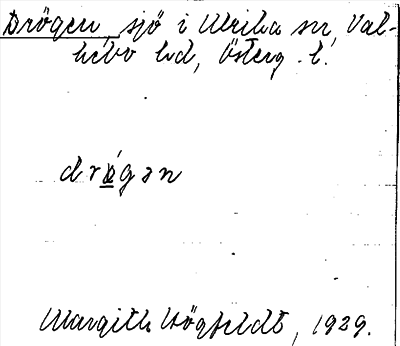 Drögen sjö i Ulrika sn, Val-
kebo hd, Österg. l.
drǿgən
Margith Högfeldt, 1929.